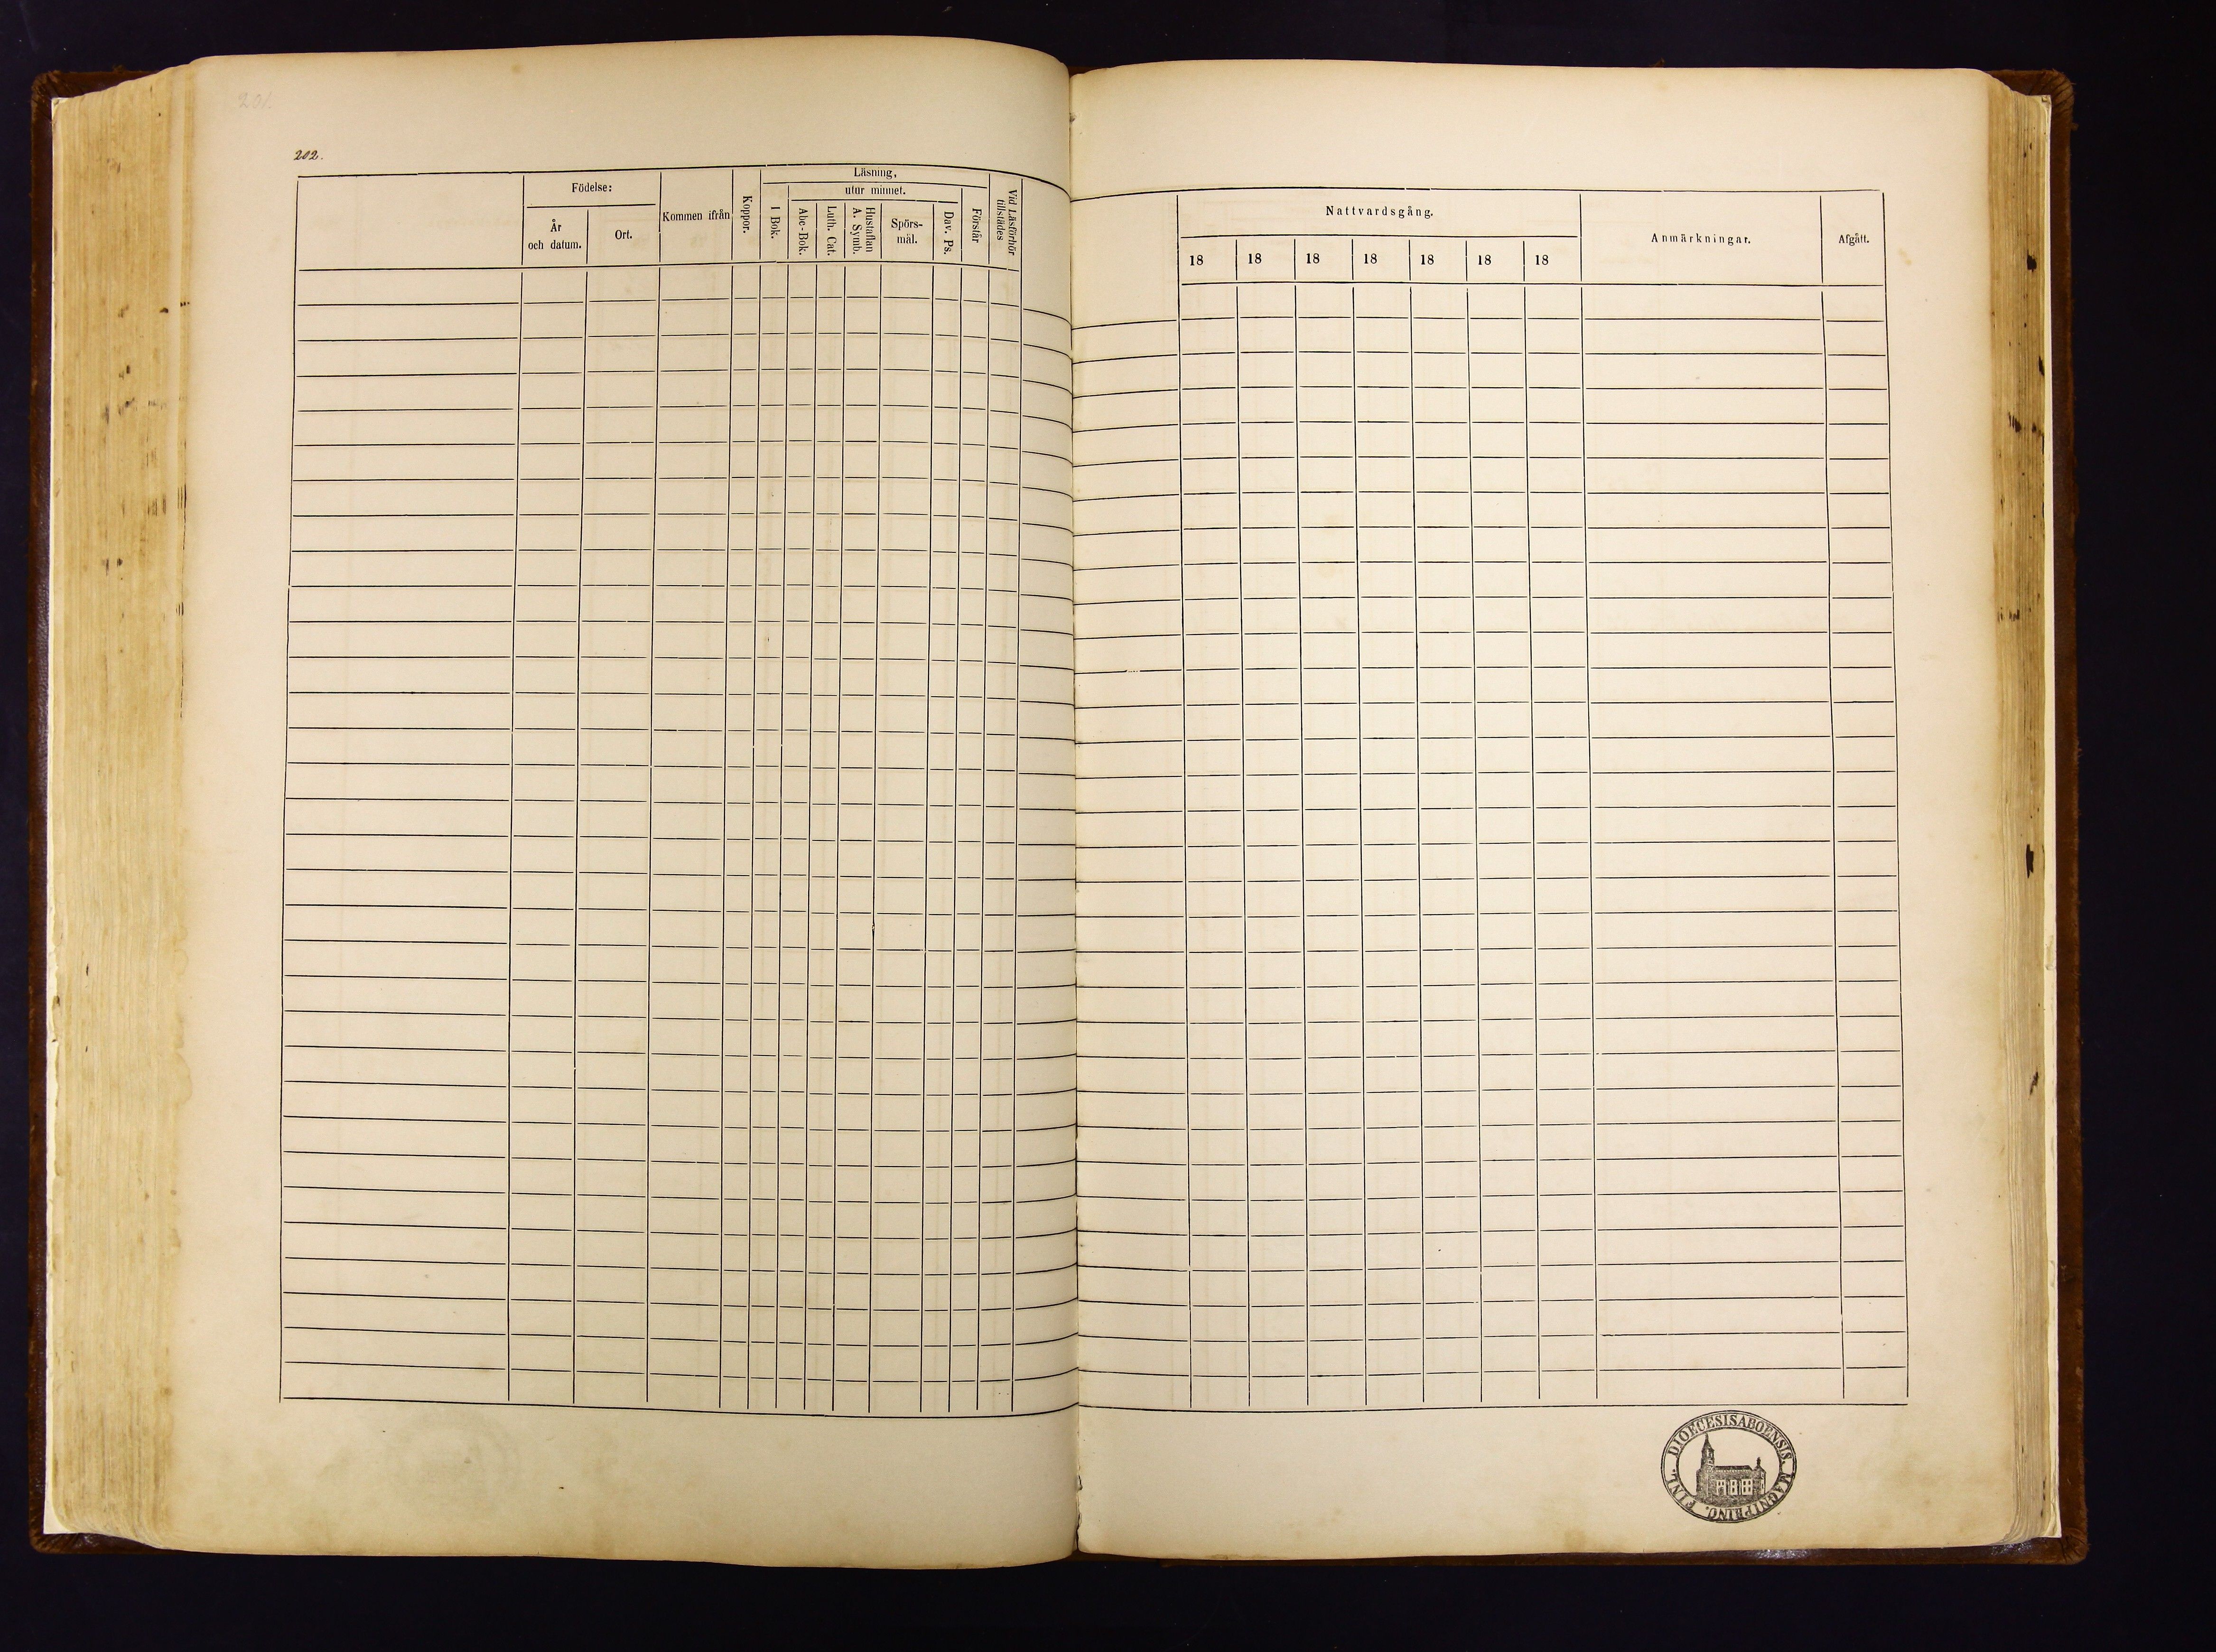 202.
Födelse:
År
och datum.
Ort.
Kommen ifrån
Koppor.
Läsning,
I Bok.
utur minnet.
Abc-Bok.
Luth. Cat.
Hustaflan
A. Symb.
Spörs-
mål.
Dav. Ps.
Förstår
Vid Läsförhör
tillstädes
Nattvardsgång.
18 18 18 18 18 18 18
Anmärkningar.
Afgått.
DIOECESISABOENSIS. MAGNI PRINC. FINL.